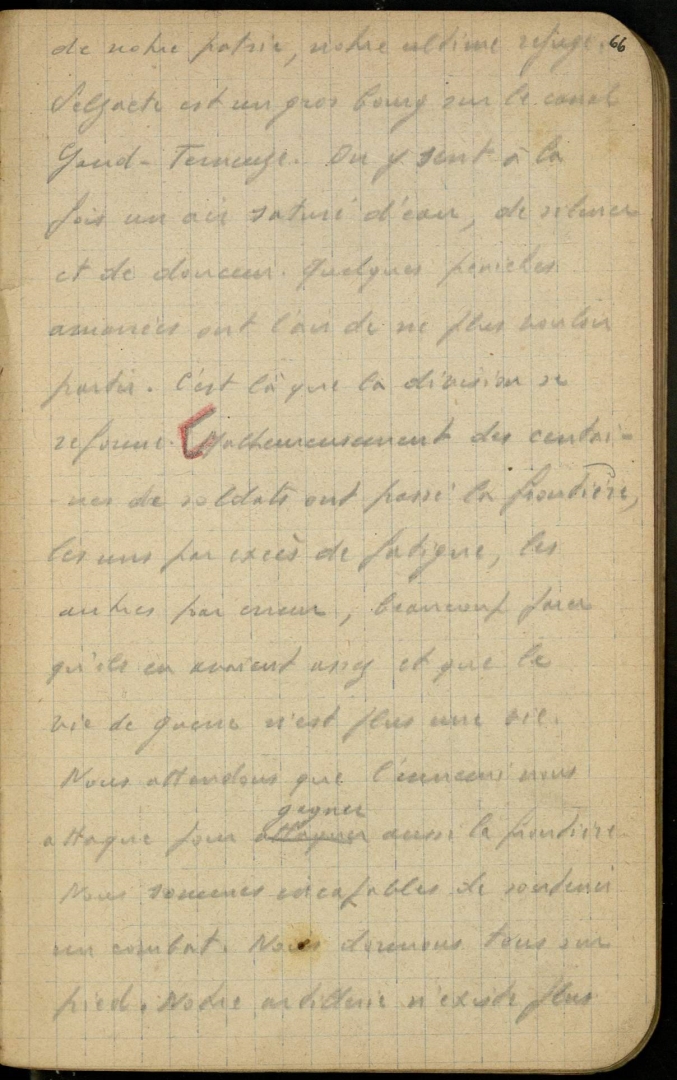 de notre patrie, notre ultime refuge. 66
Selzaete est un gros bourg sur le canal
Gand-Terneuze. On y sent à la
fois un air saturé d'eau, de silence
et de douceur. Quelques péniches
amarrées ont l'air de ne plus vouloir
partir. C'est là que la division se
reforme. [Malheureusement des centai-
nes de soldats ont passé la frontière,
les uns par excès de fatigue, les
autres par erreur, beaucoup parce
qu'ils en avaient assez et que la
vie de guerre n'est plus une vie.
Nous attendons que l'ennemi nous
gagner
attaque pour attaquer aussi la frontière.
Nous sommes incapables de soutenir
un combat. Nous dormons tous sur
pied. Notre artillerie n'existe plus